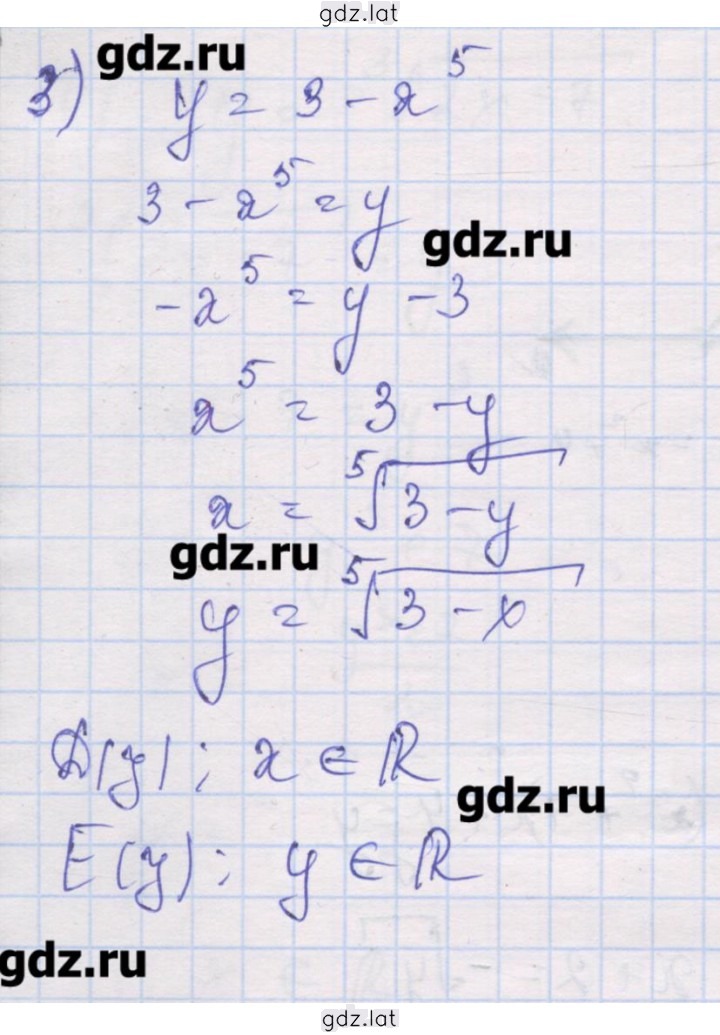 gdz.lat
gdz.ru
3) y = 3 - x⁵
3 - x⁵ = y
gdz.ru
-x⁵ = y - 3
x⁵ = 3 - y
x = ⁵√(3 - y)
gdz.ru
y = ⁵√(3 - x)
D(y): x ∈ ℝ
gdz.ru
E(y): y ∈ ℝ
gdz.ru
gdz.lat